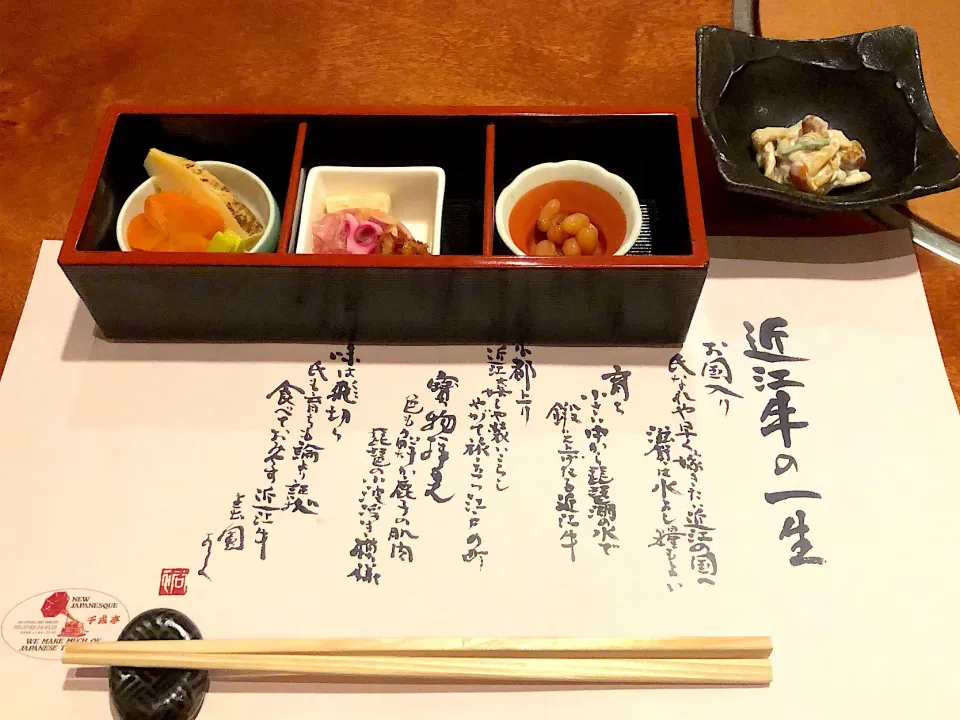 近江牛の一生
お国入り
氏なれや早く嫁きた近江の国へ
滋賀は水よし糧もよい
育ち
小さい時から琵琶湖の水で
鍛え上げたる近江牛
京都上り
近江嬉しや装いこらし
やがて旅立つ江戸の町
寳物拝見
色も鮮か鹿子の肌肉
琵琶の小波浮き模様
味は飛切ら
氏も育ちも論より証拠
食べておみやす近江牛
NEW
JAPANESQUE
千成亭
WE MAKE MUCH OF
JAPANESE T